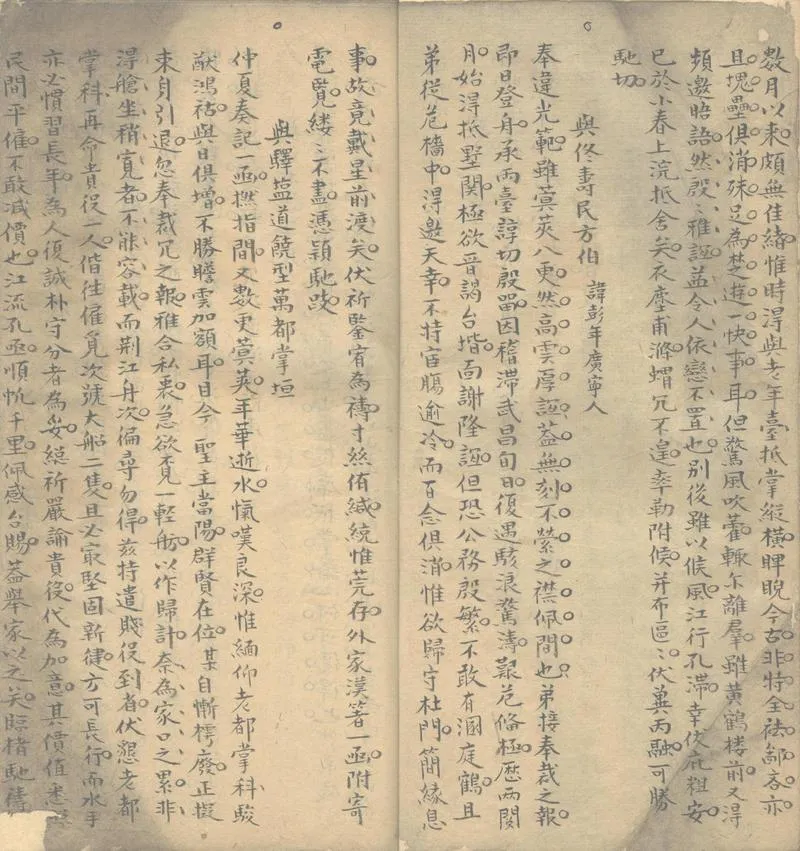 數月以來頗無佳緒惟時得與老年臺抵掌縱橫睥睨今古非特全祛鄙吝亦
且塊壘俱消殊足為楚遊一快事耳但驚風吹藿輒尔離羣雖黃鶴楼前又得
頻邀晤語然殷〻雅誼益令人依戀不置也別後雖以候風江行孔滯幸伏庇粗安
已於小春上浣抵舍矣衣塵甫滌蝟冗不遑率勒附候并布區〻伏冀丙融可勝
馳切
與佟壽民方伯 諱彭年廣寧人
奉違光範雖蓂莢八更然高雲厚誼盖無刻不縈之襟佩間也弟接奉裁之報
即日登舟承兩臺諄切殷畱因稽滯武昌旬日復遇駭浪驚濤艱危俻極歴兩閱
月始得抵墅関極欲晉謁台堦面謝隆誼但恐公務殷繁不敢有溷庭鶴且
弟從危檣中得邀天幸不特宦膓逾冷而百念俱消惟欲歸守杜門簡緣息
事故竟戴星前渡矣伏祈鑒宥為禱寸絲侑緘統惟莞存外家漢箸一函附寄
電覽縷〻不盡憑穎馳跂
與驛塩道饒型萬都掌垣
仲夏奏記一函撫指間又數更蓂莢年華逝水慨嘆良深惟緬仰老都掌科駿
猷鴻祜與日俱增不勝瞻雲加額耳目今 聖主當陽群賢在位某自慚樗廢正擬
束身引退忽奉裁冗之報雅合私衷急欲覓一輕舫以作歸計奈為家口之累非
得艙坐稍寬者不能容載而荆江舟次徧尋勿得茲特遣賤役到省伏懇老都
掌科再命貴役一人偕往僱覓次號大船二隻且必㝡堅固新律方可長行而水手
亦必慣習長年為人復誠朴守分者為妥緃祈嚴諭貴役代為加意其價值悉照
民間平僱不敢减價也江流孔亟順帆千里佩感台賜蓋舉家以之矣臨楮馳禱